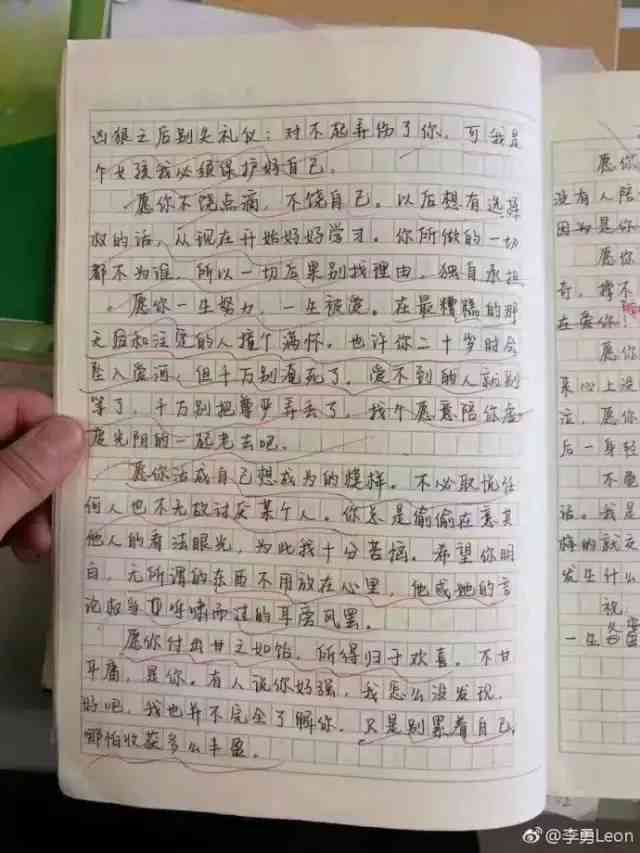 凶狠之后别失礼仪：对不起弄伤了你，可我是
个女孩我必须保护好自己。
愿你不饶点病，不饶自己。以后想有选择
权的话，从现在开始好好学习。你所做的一切
都不为谁，所以一切后果别找理由，独自承担。
愿你一生努力，一生被爱。在最糟糕的那
天后和注定的人撞个满怀。也许你二十岁时会
坠入爱河，但千万别淹死了，爱不到的人就别
等了，千万别把尊严弄丢了，找个愿意陪你虚
度光阴的一起老去吧。
愿你活成自己想成为的模样。不必取悦任
何人也不无故讨厌某个人。你总是偷偷在意其
他人的看法眼光，为此我十分苦恼。希望你明
白，无所谓的东西不用放在心里，他或她的言
论权当呼啸而过的耳旁风罢。
愿你付出甘之如饴，所得归于欢喜。不甘
平庸，是你。有人说你好强，我怎么没发现，
好吧，我也并不完全了解你。只是别累着自己，
哪怕收获多么丰盈。
愿你
没有人陪
因为是你
愿你
奇，撑不
在爱你！
愿你
来心上没
泣，愿你
后一身轻
不
话。我是
悔的就
发生什么
祝
一生
@李勇Leon